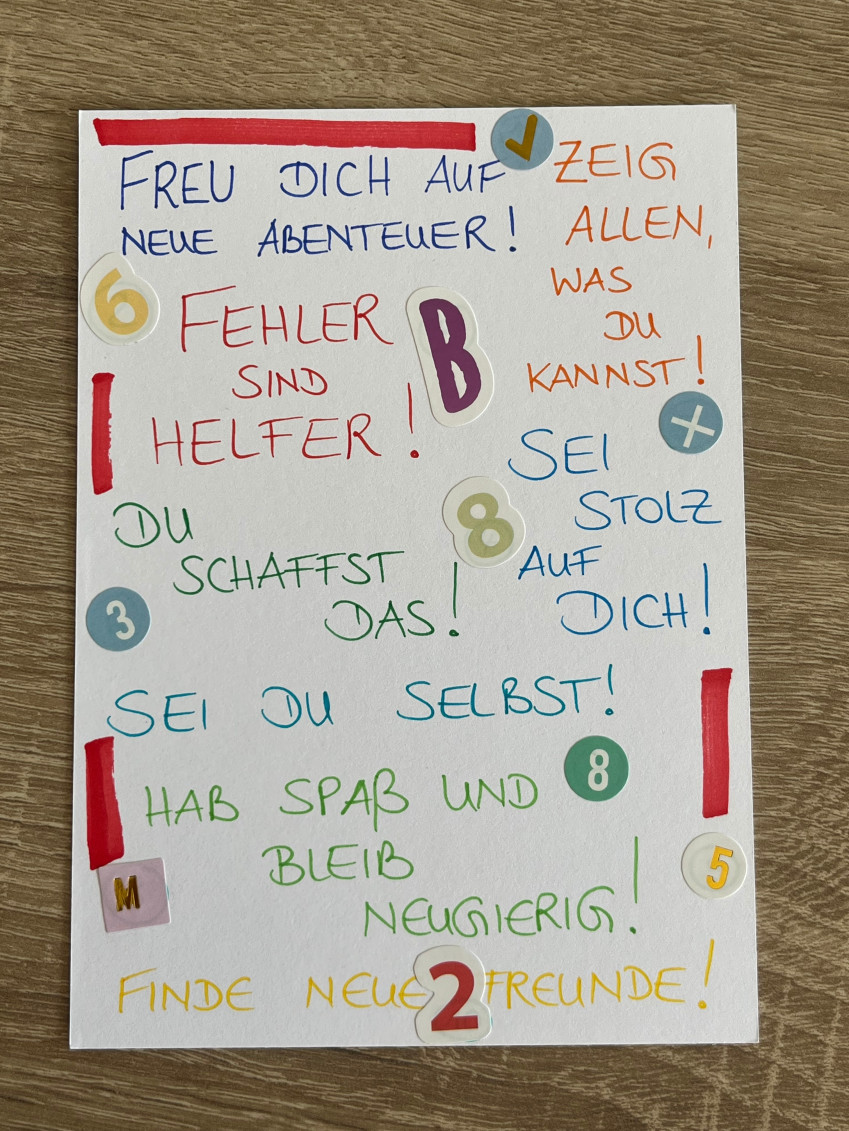 FREU DICH AUF
NEUE ABENTEUER!
ZEIG
ALLEN,
WAS
DU
KANNST!
6
FEHLER
SIND
HELFER!
B
SEI
STOLZ
AUF
DICH!
8
DU
SCHAFFST
DAS!
3
SEI DU SELBST!
8
HAB SPAß UND
BLEIB
NEUGIERIG!
M
5
FINDE NEUE FREUNDE!
2